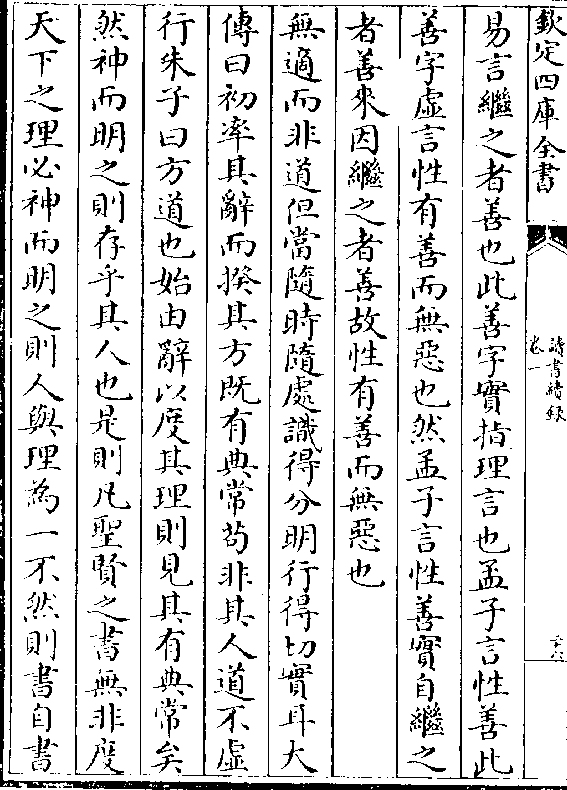 欽定四庫全書
讀書續録
卷一
易言繼之者善也此善字實指理言也孟子言性善此
善字虚言性有善而無惡也然孟子言性善實自繼之
者善來因繼之者善故性有善而無惡也
無適而非道但當隨時隨處識得分明行得切實耳大
傳曰初率其辭而揆其方既有典常苟非其人道不虚
行朱子曰方道也始由辭以度其理則見其有典常矣
然神而明之則存乎其人也是則凡聖賢之書無非度
天下之理必神而明之則人與理為一不然則書自書